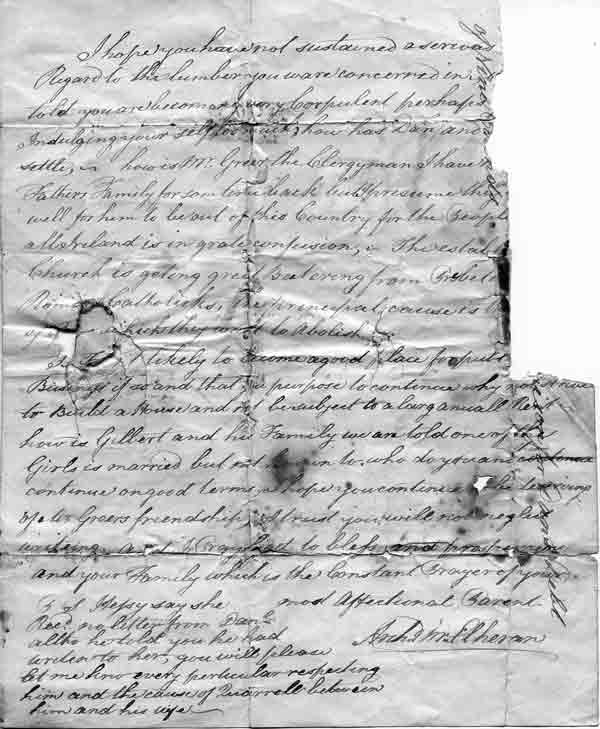 I hope you have not sustained a serious
Regard to the lumber you ware concerned in
told you are becoming very Corpulent perhaps
Indulging your self too much, how has Danl and
settle, how is Mr. Greer the Clergyman I have
Fathers Family for som time back but I presume they
well for him to be out of this Country for the People
all Ireland is in grate confusion, The estab
Church is geting great Battering from
Roman Catholicks, the principal cause is
which they want to Abolish
Is likely to become a good place for publ
Busings if so and that you purpose to continue why not
to Build a House and not be subject to a larg anuall Rent
how is Gilbert and his Family we are told one of his
Girls is married but not to who do you and
continue on good terms, I hope you continue
Greers friendship, I trust you will not neglec
writeing to bless and prosper you
and your Family which is the Constant Prayer of your
most Affectionat Parent
Archd McElheran
P S Hepsy say she
Recd. no letter from Danl.
altho he told you he had
writen to her, you will please
let me know every particular respecting
him and the cause of Quarrell between
him and his wife